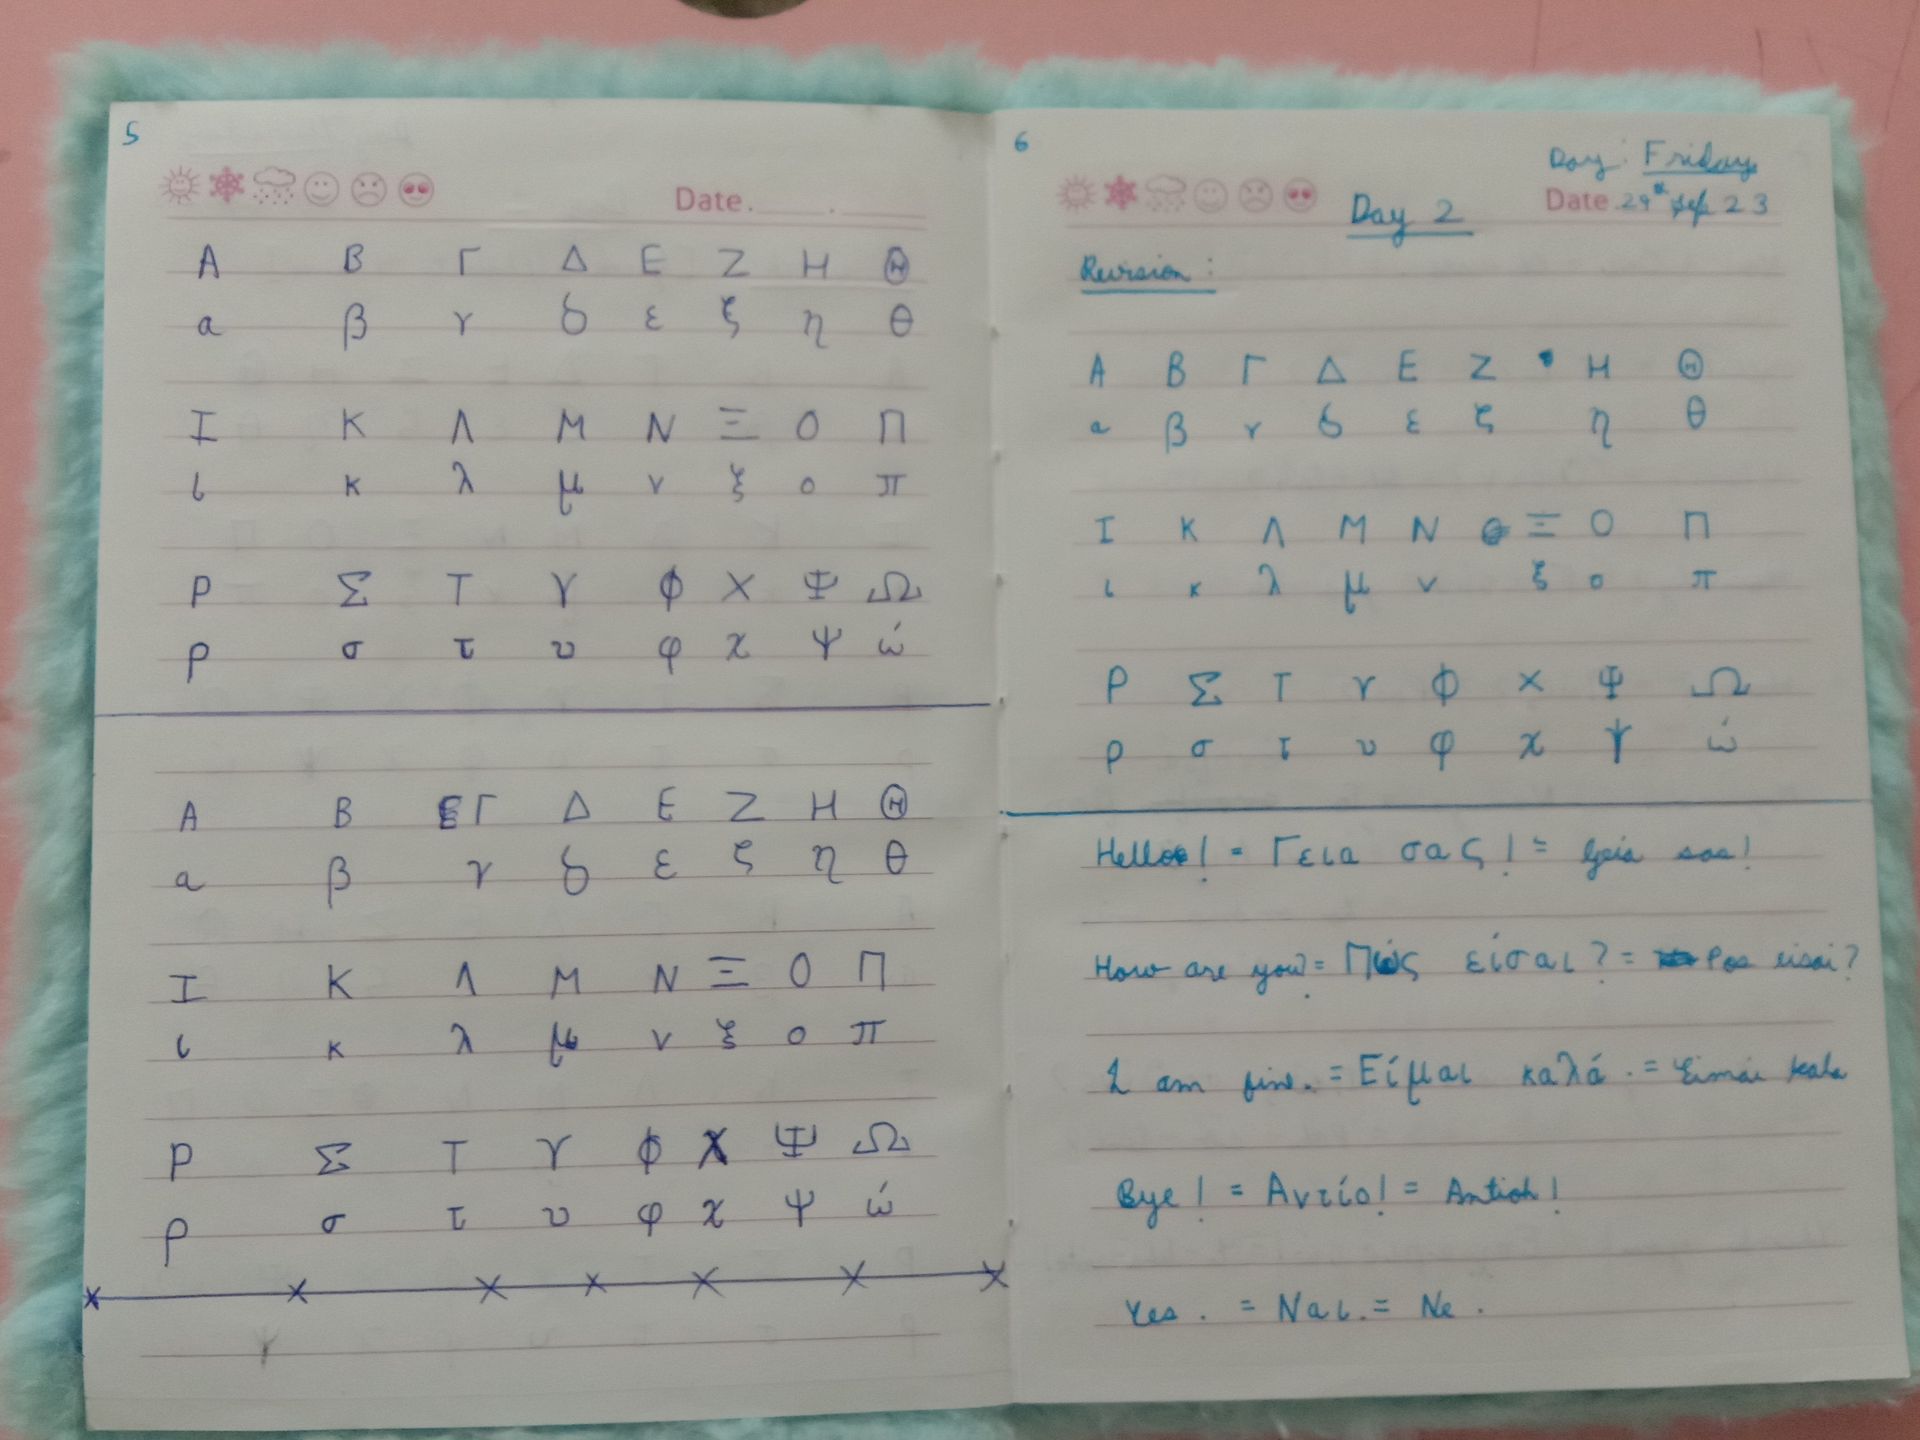 5
Date
Α Β Γ Δ Ε Ζ Η Θ
α β γ δ ε ξ η θ
Ι Κ Λ Μ Ν Ξ Ο Π
ι κ λ μ ν ξ ο π
Ρ Σ Τ Υ Φ Χ Ψ Ω
ρ σ τ υ φ χ ψ ώ
Α Β Γ Δ Ε Ζ Η Θ
α β γ δ ε ζ η θ
Ι Κ Λ Μ Ν Ξ Ο Π
ι κ λ μ ν ξ ο π
Ρ Σ Τ Υ Φ Χ Ψ Ω
ρ σ τ υ φ χ ψ ώ
6
Day: Friday
Date 29th Sep 23
Day 2
Revision:
Α Β Γ Δ Ε Ζ Η Θ
α β γ δ ε ζ η θ
Ι Κ Λ Μ Ν Ξ Ο Π
ι κ λ μ ν ξ ο π
Ρ Σ Τ Υ Φ Χ Ψ Ω
ρ σ τ υ φ χ ψ ώ
Hello! = Γεια σας! = Geia sas!
How are you? = Πώς είσαι? = Pos eisai?
I am fine. = Είμαι καλά. = Eimai kala
Bye! = Αντίο! = Antioh!
Yes. = Ναι. = Ne.